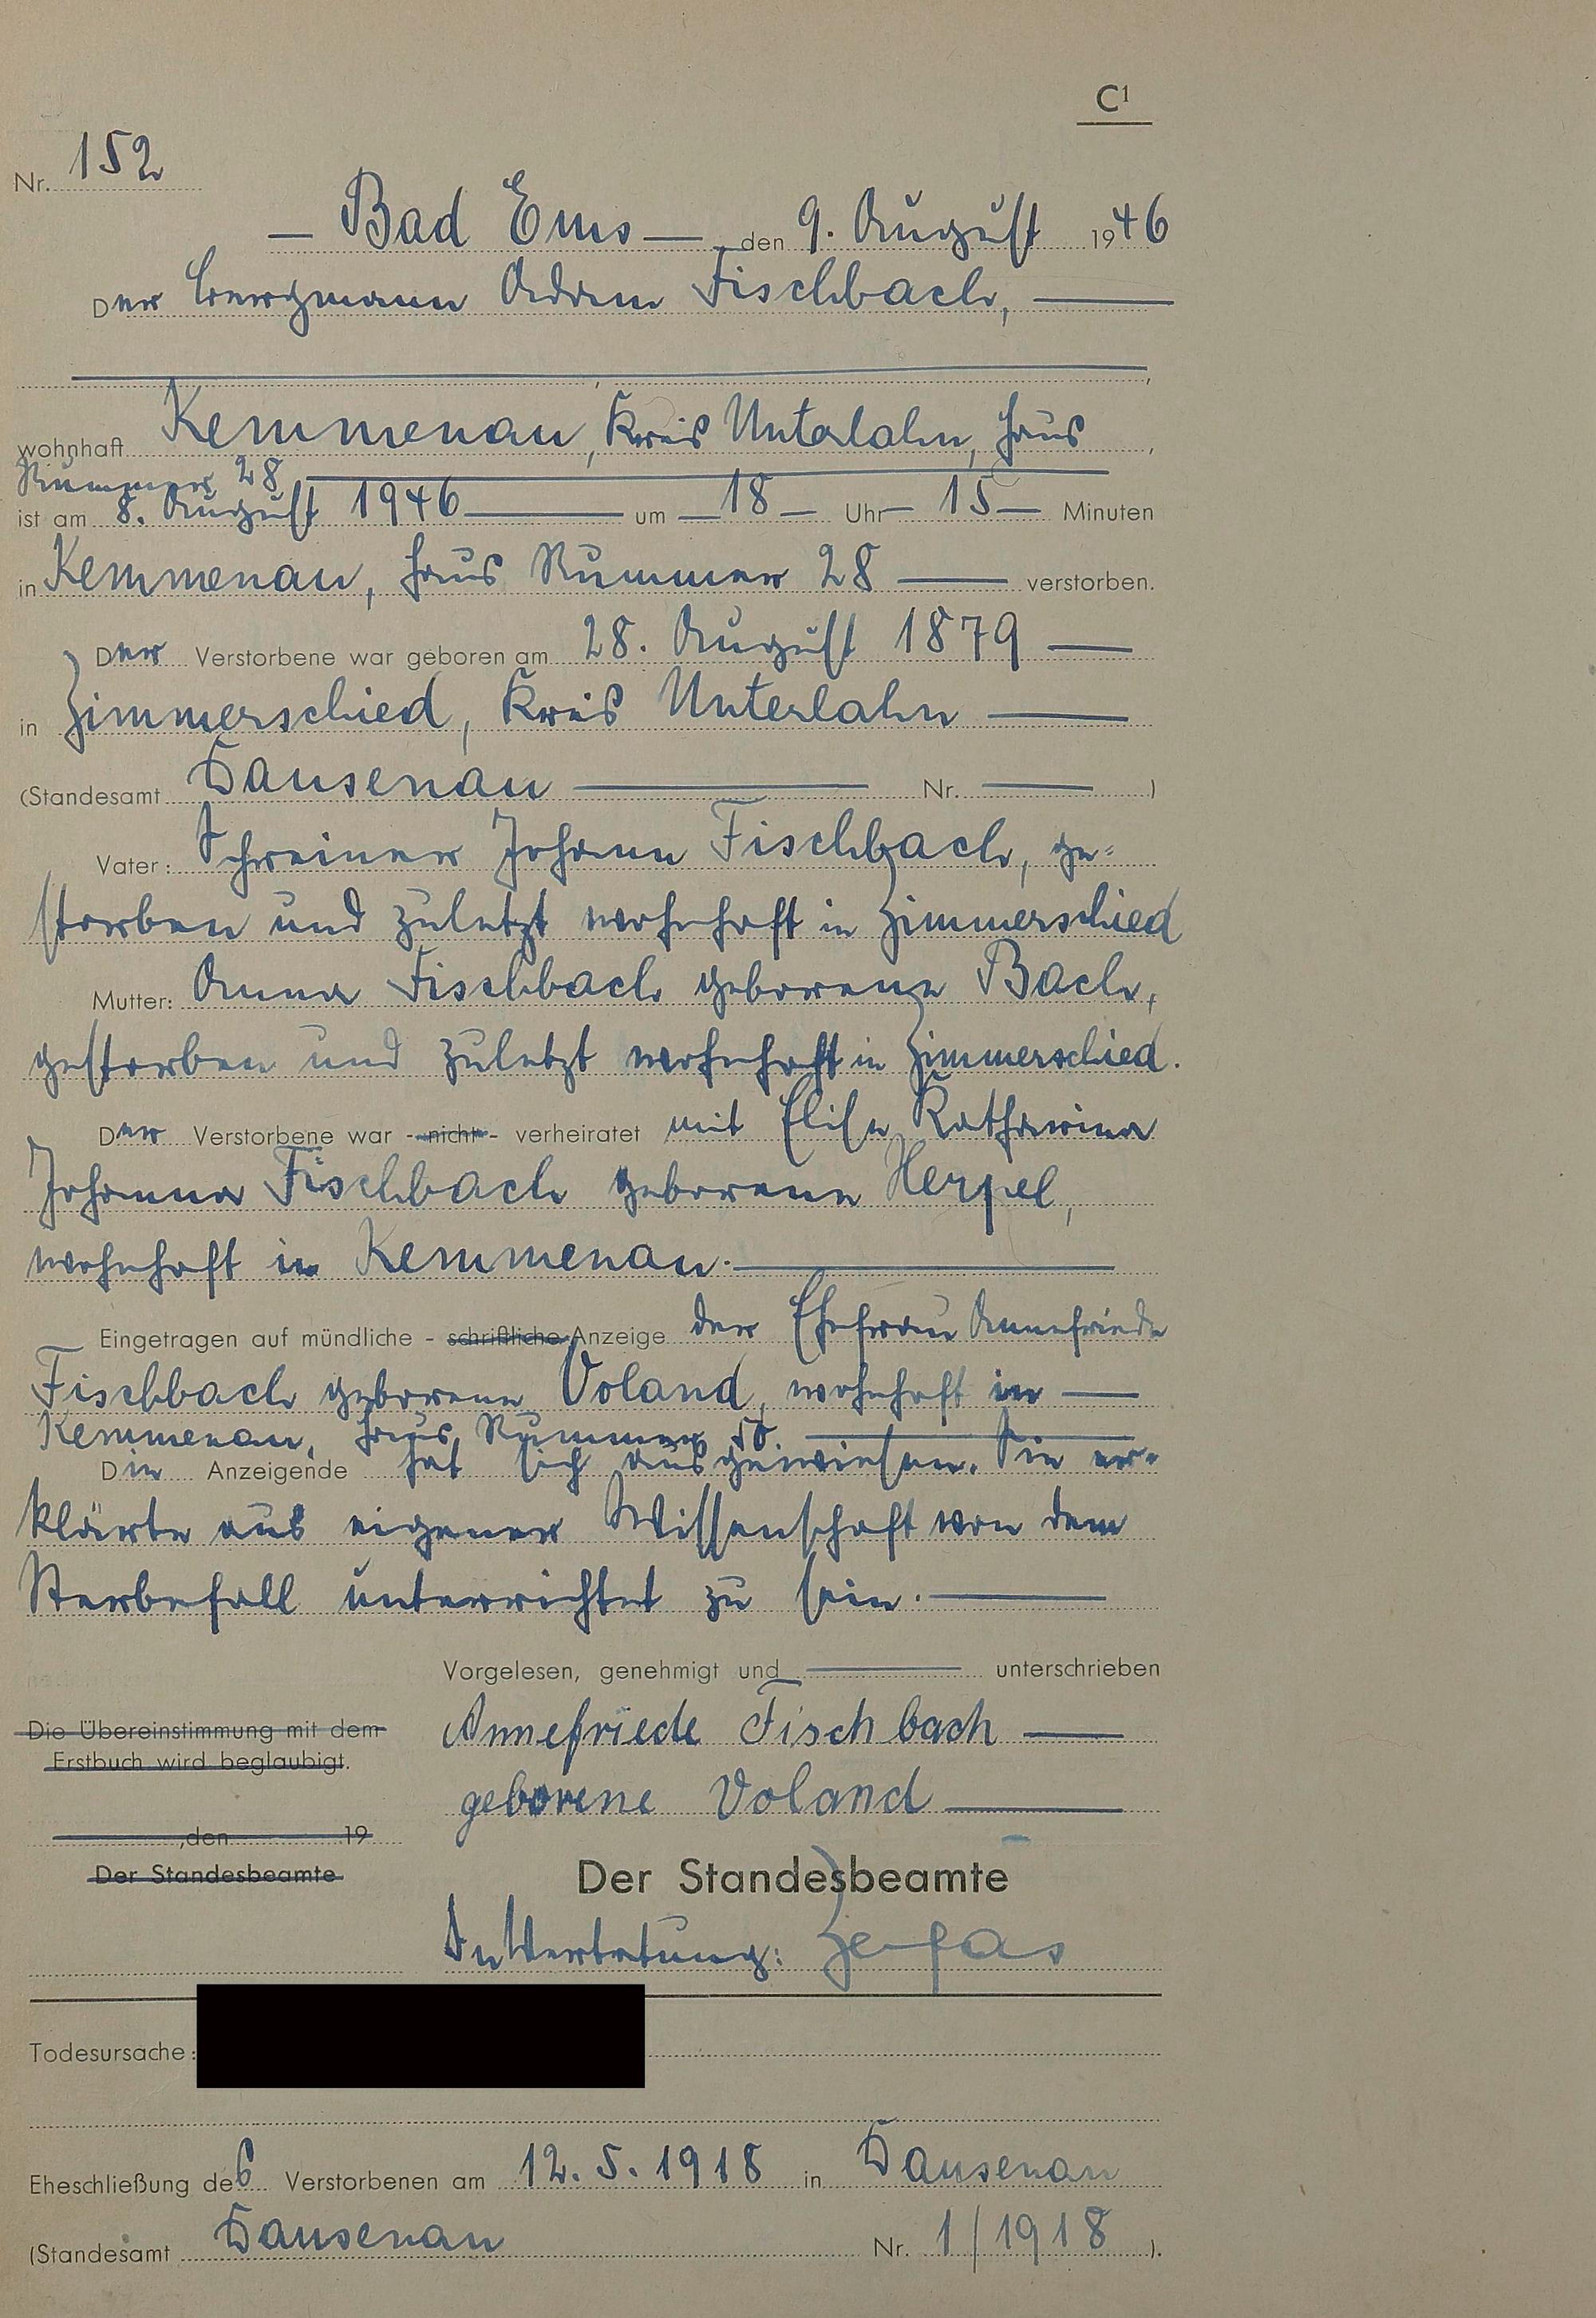 C1
Nr. 152
— Bad Ems — den 9. August 1946
Der Bergmann Adam Fischbach,
wohnhaft Kemmenau, Kreis Unterlahn, Haus
Nummer 28
ist am 8. August 1946 um 18 Uhr 15 Minuten
in Kemmenau, Haus Nummer 28 verstorben.
Der Verstorbene war geboren am 28. August 1879
in Zimmerschied, Kreis Unterlahn
(Standesamt Dausenau Nr. )
Vater: Schreiner Johann Fischbach, ge-
storben und zuletzt wohnhaft in Zimmerschied
Mutter: Anna Fischbach geborene Bach,
gestorben und zuletzt wohnhaft in Zimmerschied.
Der Verstorbene war - nicht - verheiratet mit Elise Katharina
Johanna Fischbach geborene Herpel,
wohnhaft in Kemmenau.
Eingetragen auf mündliche - schriftliche - Anzeige der Ehefrau Annefriede
Fischbach geborene Voland, wohnhaft in
Kemmenau, Haus Nummer 50.
Die Anzeigende hat sich ausgewiesen. Sie er-
klärte aus eigener Wissenschaft von dem
Sterbefall unterrichtet zu sein.
Vorgelesen, genehmigt und unterschrieben
Die Übereinstimmung mit dem
Erstbuch wird beglaubigt.
Annefriede Fischbach
geborene Voland
, den 19
Der Standesbeamte
Der Standesbeamte
In Vertretung: Zerfas
Todesursache:
Eheschließung des Verstorbenen am 12.5.1918 in Dausenau
(Standesamt Dausenau Nr. 1/1918 ).